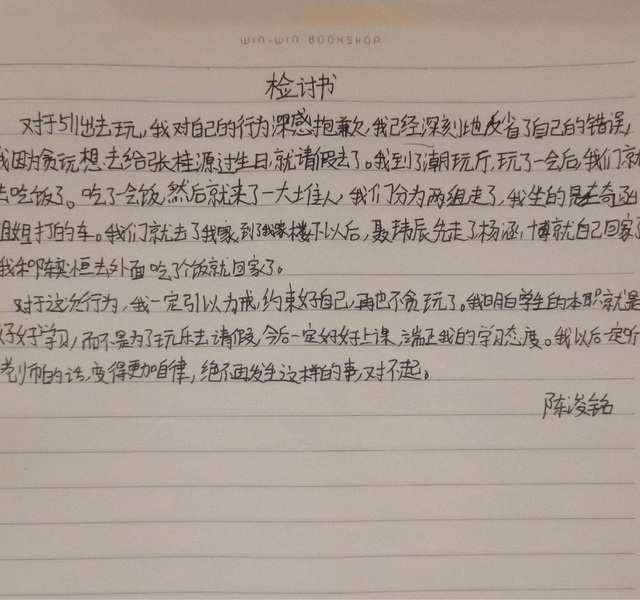 WIN-WIN BOOKSHOP
检讨书
对于511出去玩,我对自己的行为深感抱歉,我已经深刻地反省了自己的错误,
我因为贪玩想去给张桂源过生日,就请假去了。我到了潮玩厅,玩了一会后,我们就
去吃饭了。吃了会饭,然后就来了一大堆人,我们分为两组走了,我坐的是左奇函
姐姐打的车。我们就去了我家,到了我家楼下以后,聂玮辰先走了杨涵,博就自己回家了
我和陈奕恒去外面吃了个饭就回家了。
对于这次行为,我一定引以为戒,约束好自己,再也不贪玩了。我明白学生的本职就是
好好学习,而不是为了玩乐去请假,今后一定好好上课,端正我的学习态度。我以后一定听
老师的话,变得更加自律,绝不再发生这样的事,对不起。
陈浚铭